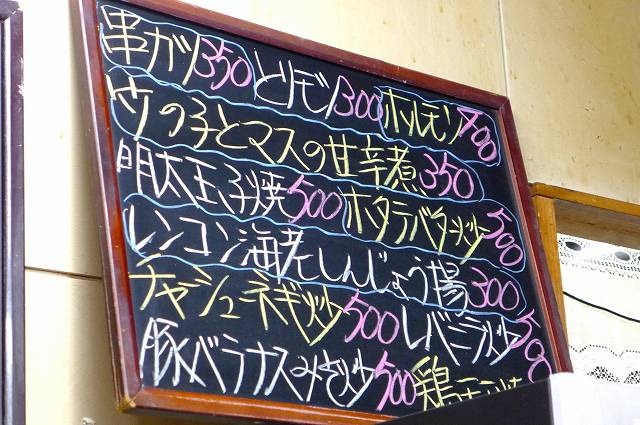 串ガツ350 とりモツ300 ホルモン400
竹の子とマスの甘辛煮350
明太玉子焼500 ホタテバター炒500
レンコン海老しんじょう揚300
チャーシューネギ炒500 レバニラ炒500
豚バラナスみそ炒500 鶏